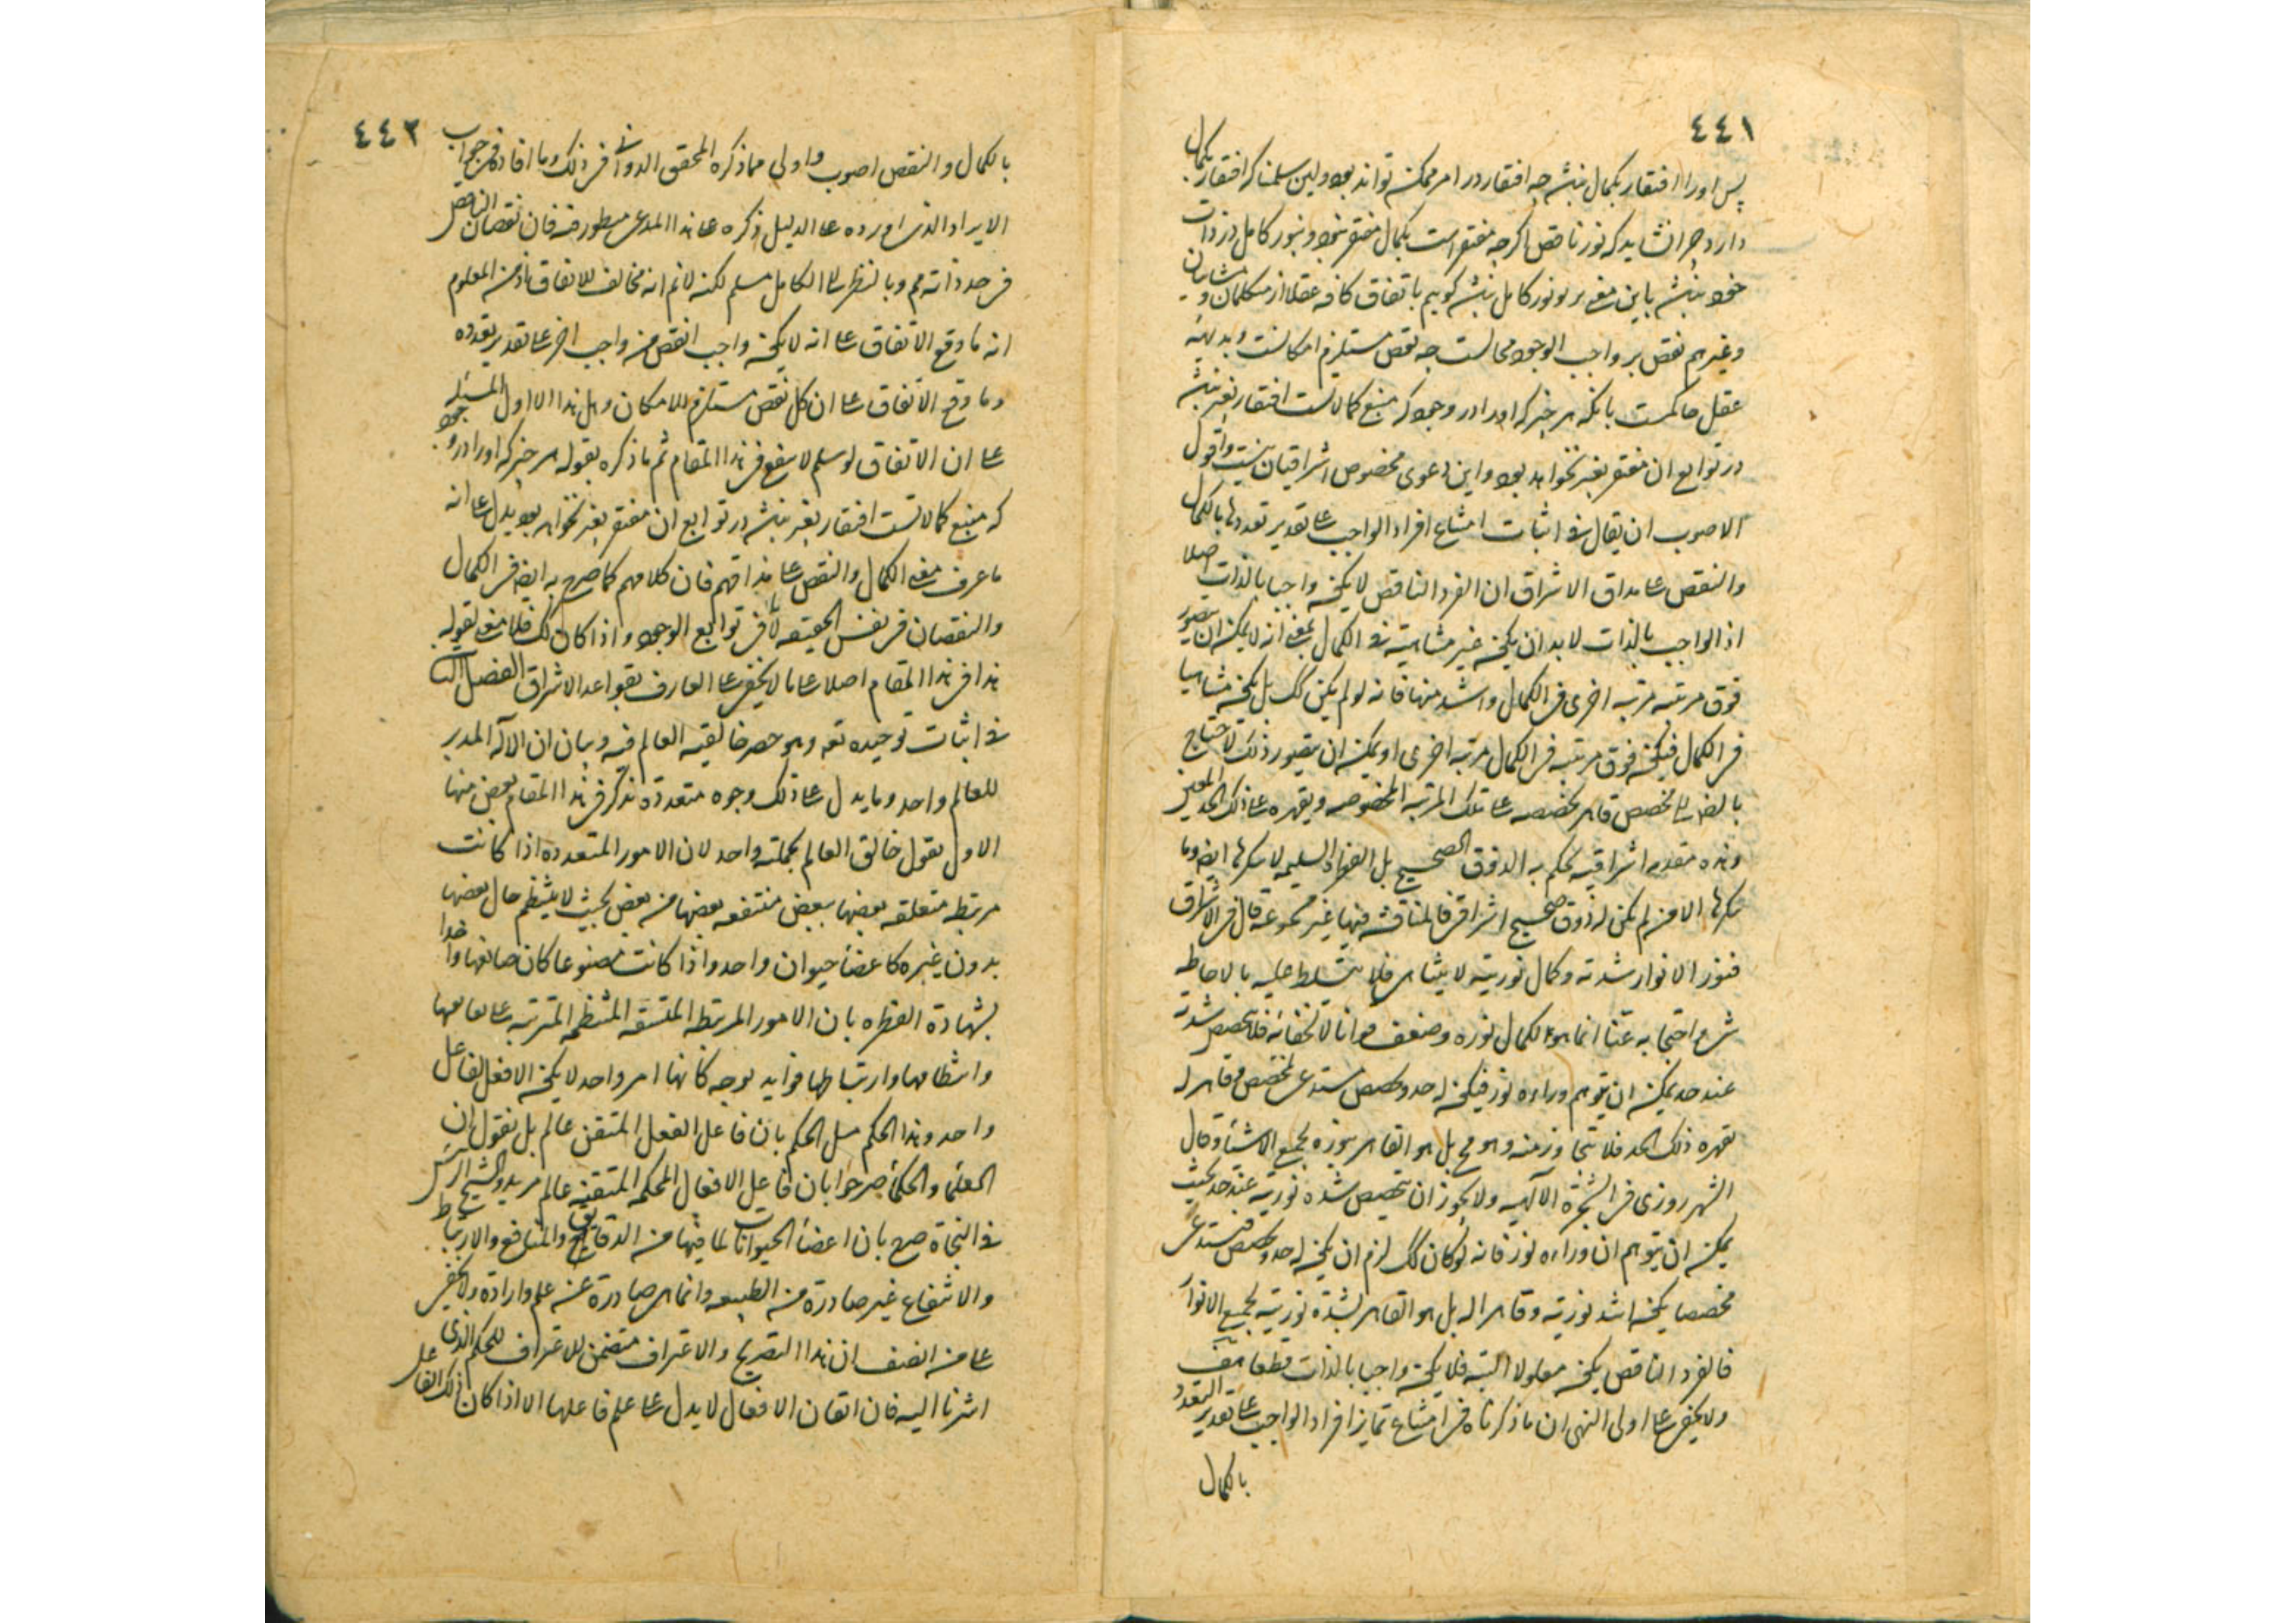 ٤٤١
پس اورا افتقار بکمال نبشد چه افتقار در امر ممکنه تواند بود ولین سلمنا که افتقار بکمال
دارد چرا نشاید که نور ناقص اگرچه مفتقر است بکمال مفتقر نبود و نبور کامل در ذات
خود نبشد باین معنی بر نور کامل نبشد کوییم باتفاق کافه عقلا از متکلمان و مشایان
وغیرهم نقص بر واجب الوجود محالست چه نقص مستلزم امکانست و بدیهه
عقل حاکمست بانکه هر چیز که اورا در وجود که منبع کمالاتست افتقار بغیر نبشد
در توابع ان مفتقر بغیر نخواهد بود و این دعوی مخصوص اشراقیان نیست واقول
الاصوب ان یقال فی اثبات امتناع افراد الواجب علی تقدیر تعددها بالکمال
والنقص علی مذاق الاشراق ان الفرد الناقص لا یکون واجبا بالذات اصلا
اذ الواجب بالذات لا بد ان یکون غیر متناهیة فی الکمال بمعنی انه لا یمکن ان یتصور
فوق مرتبته مرتبه اخری فی الکمال واشد منها فانه لو لم یکن کک بل یکون متناهیا
فی الکمال فیکون فوق مرتبته فی الکمال مرتبه اخری او یمکن ان یتصور ذلک لاحتاج
بالضـ الی مخصص قاهر یخصصه علی تلک المرتبه المخصوصه ویقهره علی ذلک الحد المعین
وهذه مقدمه اشراقیه یحکم به الذوق الصحیح بل الفطرة السلیمه لا ینکرها ایضا وما
ینکرها الا من لم یکن له ذوق صحیح اشراقی فالمناقشه فیها غیر مسموعه قال فی الاشراق
فنور الانوار شدته وکمال نوریته لا یتناهی فلا یتسلط علیه بالاحاطه
شیء واحتجابه عنا انما هو لکمال نوره وضعف قوانا لا لخفائه فلا تخصص شدته
عند حد یمکن ان یتوهم وراءه نور فیکون له حد وتخصص مستدعی لمخصص وقاهر له
یقهره ذلک الحد فلا یتجاوز منه وهو مح بل هو القاهر بنوره لجمیع الاشیاء وقال
الشهرزوری فی الشجرة الالهیه ولا یجوز ان یتخصص شده نوریته عند حد بحیث
یمکن ان یتوهم ان وراءه نور فانه لو کان کک لزم ان یکون له حد وتخصص فیستدعی
مخصصا یکون اشد نوریته وقاهرا له بل هو القاهر لشدة نوریته لجمیع الانوار
فالفرد الناقص یکون معلولا البته فلا یکون واجبا بالذات قطعا هف
ولا یخفی علی اولی النهی ان ما ذکرناه فی امتناع تمایز افراد الواجب علی تقدیر التعدد
بالکمال
٤٤٢
بالکمال والنقص اصوب واولی مما ذکره المحقق الدوانی فی ذلک وما افاده فی جواب
الایراد الذی اورده علی الدلیل ذکره علی هذا المدعی منظور فیه فان نقصان الناقص
فی حد ذاته مم وبالنظر الی الکامل مسلم لکنه لا نم انه مخالف للاتفاق اذ من المعلوم
انه ما وقع الاتفاق علی انه لا یکون واجب انقص من واجب اخر علی تقدیر تعدده
وما وقع الاتفاق علی ان کل نقص مستلزم للامکان وهل هذا الا اول المسئله
علی ان الاتفاق لو سلم لا ینفع فی هذا المقام ثم ما ذکره بقوله هر چیز که اورا در وجود
که منبع کمالاتست افتقار بغیر نبشد در توابع ان مفتقر بغیر نخواهد بود یدل علی انه
ما عرف معنی الکمال والنقص علی مذاقهم فان کلامهم کما صرح به ایضا فی الکمال
والنقصان فی نفس الحقیقه لا فی توابع الوجود واذا کان کک فلا معنی لقوله
هذا فی هذا المقام اصلا علی ما لا یخفی علی العارف بقواعد الاشراق الفصل الثا
فی اثبات توحیده تعه وهو حصر خالقیه العالم فیه وبیان ان الآله المدبر
للعالم واحد وما یدل علی ذلک وجوه متعددة نذکر فی هذا المقام بعض منها
الاول نقول خالق العالم بجملته واحد لان الامور المتعدده اذا کانت
مرتبطه متعلقه بعضها ببعض منتفعه بعضها من بعض بحیث لا ینتظم حال بعضها
بدون غیره کاعضاء حیوان واحد واذا کانت مصنوعا کان صانعها واحدا
بشهادة الفطره بان الامور المرتبطه المتسقه المنتظمه المترتبه علی نفاعها
وانتظامها وارتباطها فواید بوجه کانها امر واحد لا یکون الا فعل لفاعل
واحد وهذا الحکم مثل الحکم بان فاعل الفعل المتقن عالم بل نقول ان
العلماء والحکماء صرحوا بان فاعل الافعال المحکمه المتقنه عالم مرید والشیخ الرئیس
فی النجاة صرح بان اعضاء الحیوانات لما فیها من الدقایق والمنافع والارتباط
والانتفاع غیر صادرة من الطبیعه وانما هی صادرة عن علم وارادة ولا یخفی
علی من انصف ان هذا التصریح والاعتراف متضمن للاعتراف للحکم الذی
اشرنا الیه فان اتقان الافعال لا یدل علی علم فاعلها الا اذا کان ذلک الفاعل